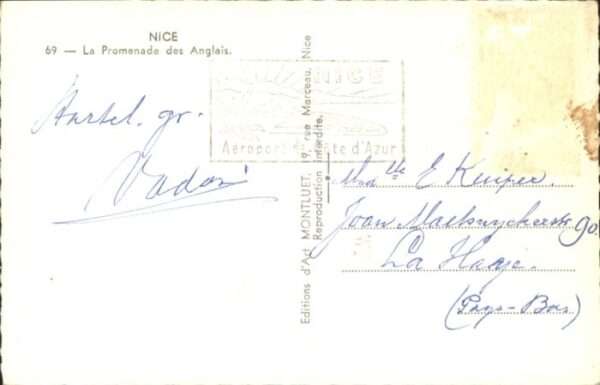 NICE
69 — La Promenade des Anglais.
NICE
Aéroport Côte d'Azur
Hartel. gr.
Editions d'Art MONTLUET, 19, rue Marceau, Nice
Reproduction interdite.
E Kuiper.
Joan Maetsuyckerstr 90.
La Haye.
(Pays-Bas)